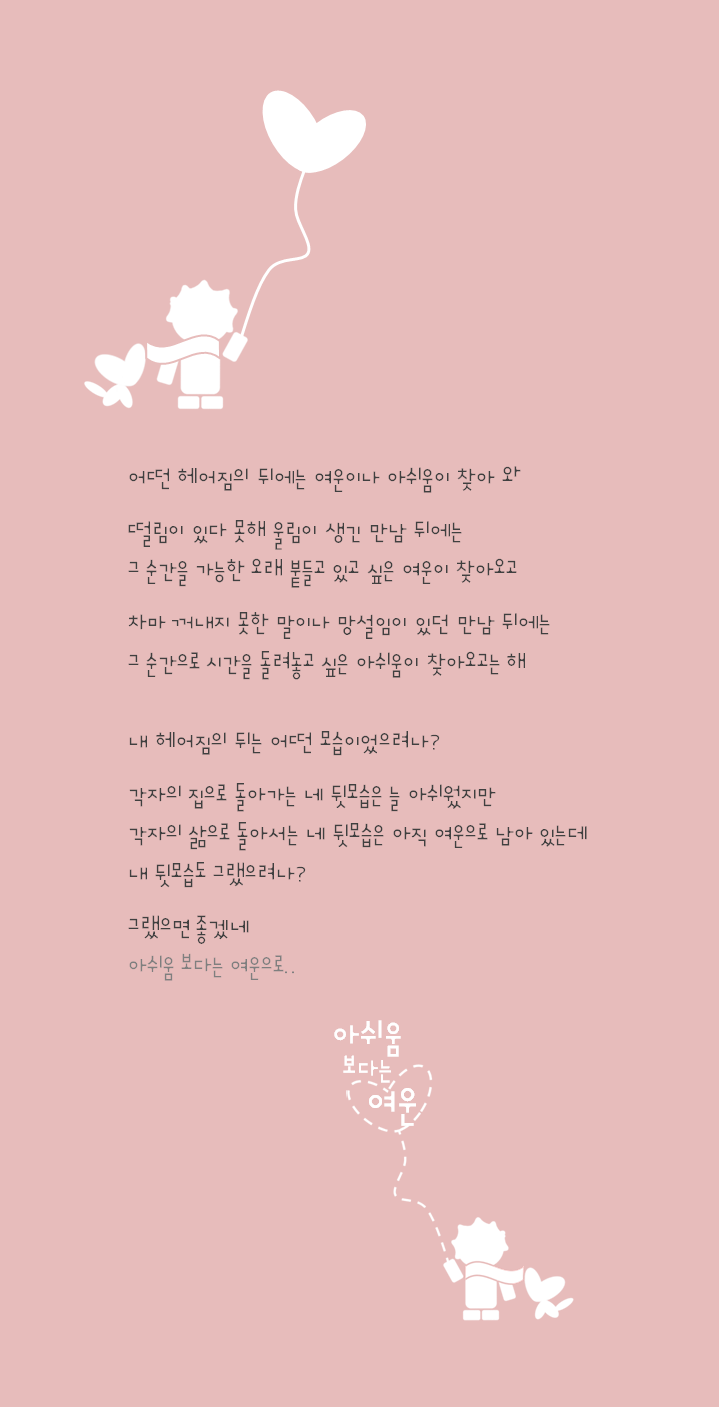 어떤 헤어짐의 뒤에는 여운이나 아쉬움이 찾아 와
떨림이 있다 못해 울림이 생긴 만남 뒤에는
그 순간을 가능한 오래 붙들고 있고 싶은 여운이 찾아오고
차마 꺼내지 못한 말이나 망설임이 있던 만남 뒤에는
그 순간으로 시간을 돌려놓고 싶은 아쉬움이 찾아오고는 해
내 헤어짐의 뒤는 어떤 모습이었으려나?
각자의 집으로 돌아가는 네 뒷모습은 늘 아쉬웠지만
각자의 삶으로 돌아서는 네 뒷모습은 아직 여운으로 남아 있는데
내 뒷모습도 그랬으려나?
그랬으면 좋겠네
아쉬움 보다는 여운으로..
아쉬움
보다는
여운